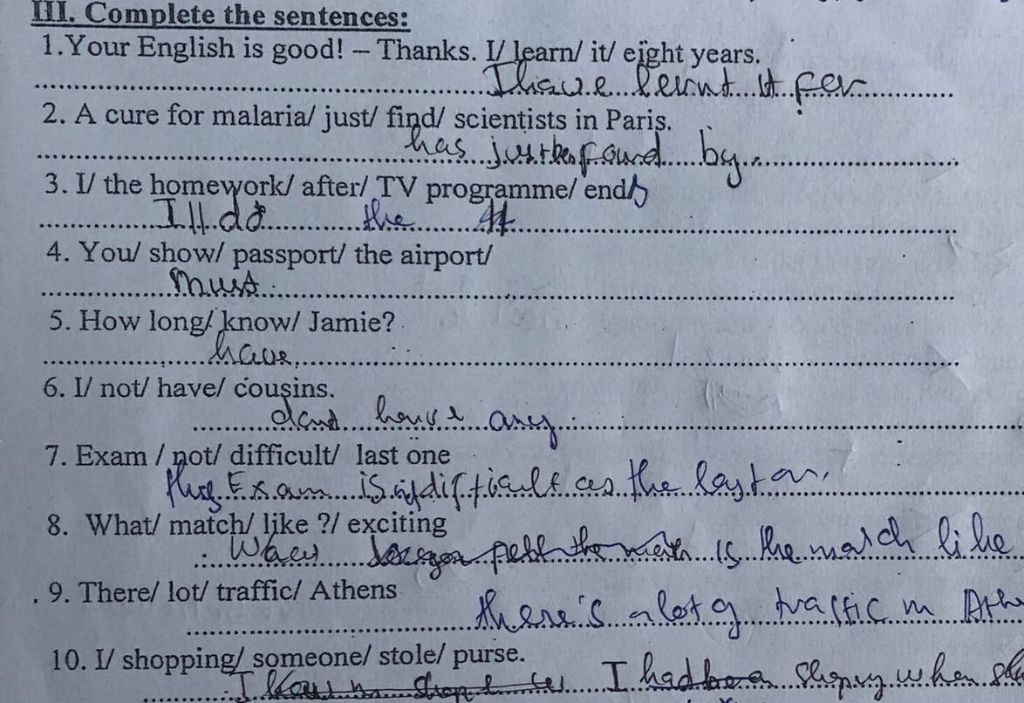 III. Complete the sentences:
1.Your English is good! – Thanks. I/ learn/ it/ eight years.
I have lernt it for
2. A cure for malaria/ just/ find/ scientists in Paris.
has just been found by
3. I/ the homework/ after/ TV programme/ end/s
I'll do the
4. You/ show/ passport/ the airport/
must
5. How long/ know/ Jamie?
have
6. I/ not/ have/ cousins.
have any
7. Exam / not/ difficult/ last one
Exam is difficult as the last
8. What/ match/ like ?/ exciting
is the match like
. 9. There/ lot/ traffic/ Athens
there's a lot of traffic in Ath
10. I/ shopping/ someone/ stole/ purse.
I had when